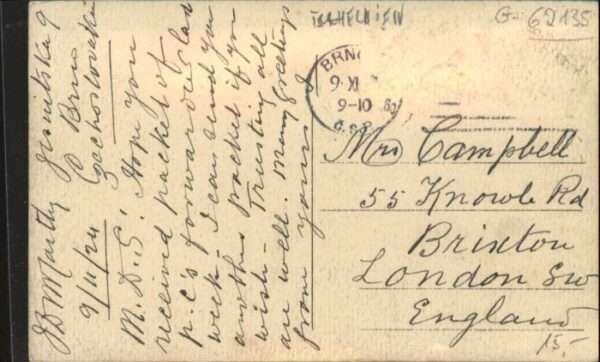 TSCHECHIEN
G- 62135
BRNO
9.XI
9-10
J B McCarthy Jesuitska 9
9/11/24 Brno
Czechoslovakia
M.D.S! Hope you
received packet of
p.c's forwarded last
week. I can send you
another packet if you
wish. Trusting all
are well. Many greetings
from yours J
Mrs Campbell
55 Knowle Rd
Brixton
London SW
England
15-